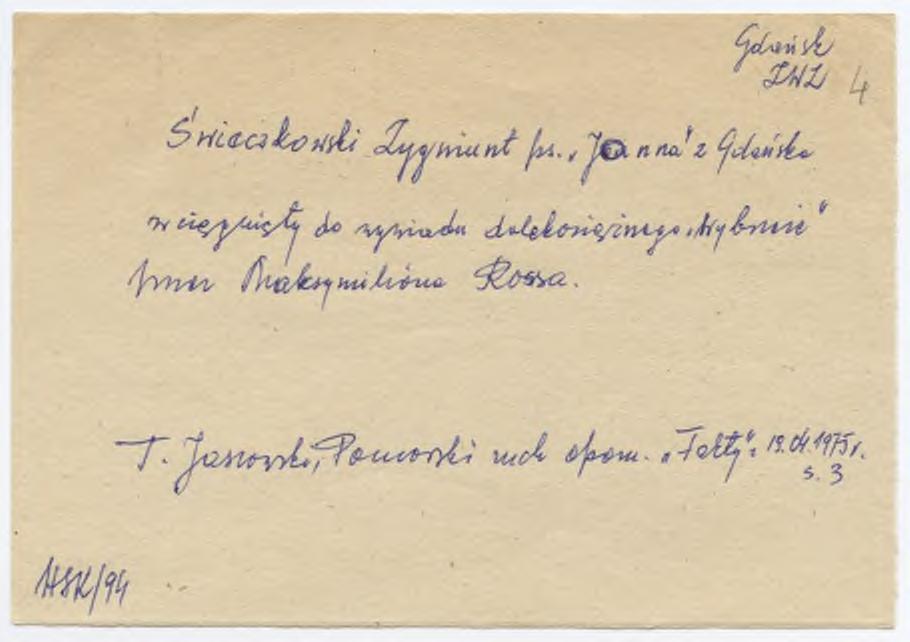 Gdańsk
ZWZ 4
Świeczkowski Zygmunt ps. „Joanna” z Gdańska
wciągnięty do wywiadu dalekosiężnego „Wybrzeże”
przez Maksymiliana Rossa.
T. Jaszowski, Pomorski ruch oporu. „Fakty”. 19.04.1975r.
s. 3
HSK/94